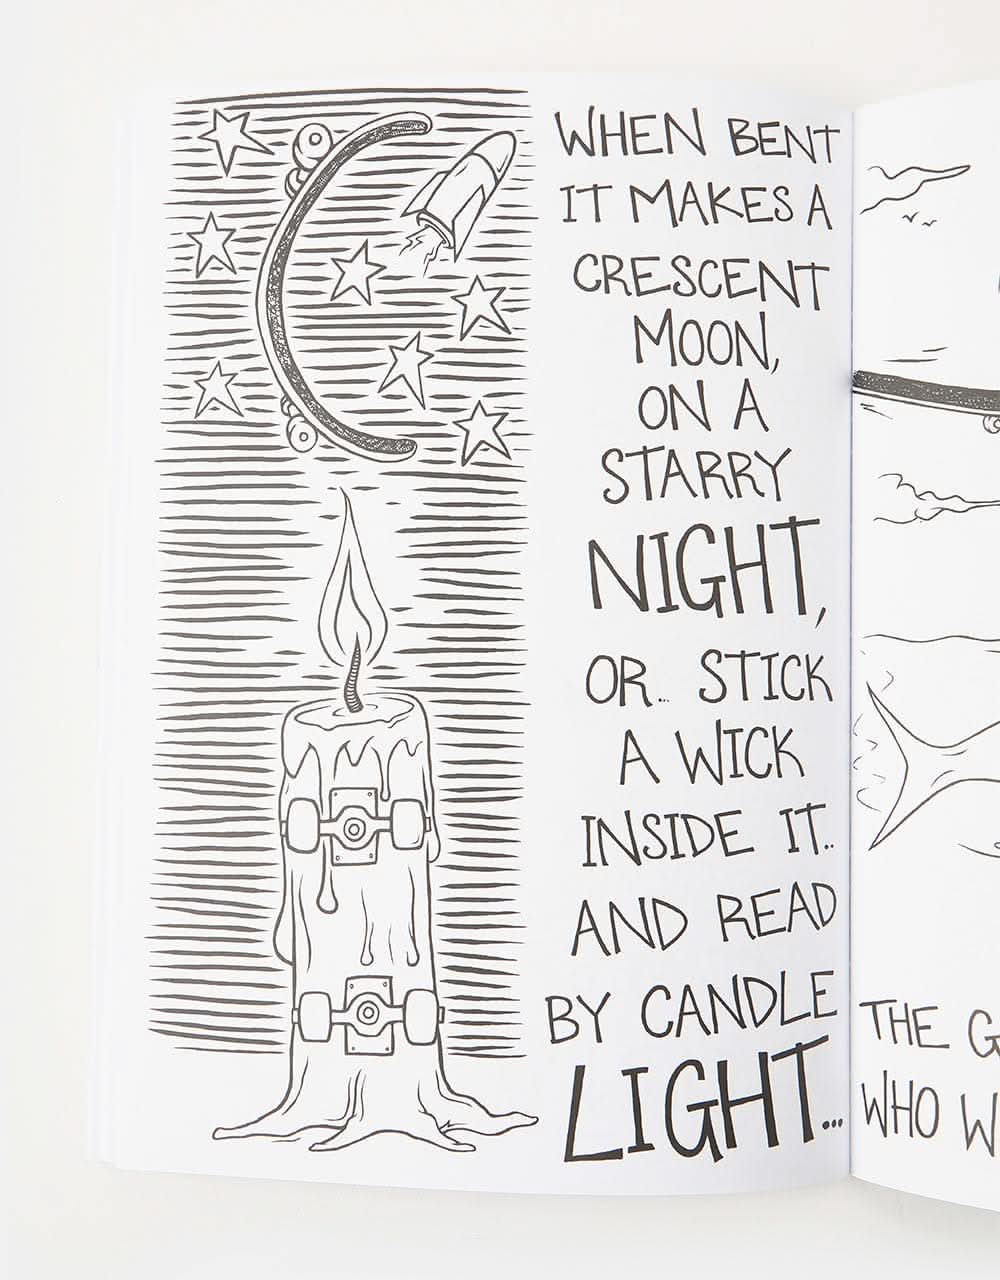 WHEN BENT
IT MAKES A
CRESCENT
MOON,
ON A
STARRY
NIGHT,
OR.. STICK
A WICK
INSIDE IT..
AND READ
BY CANDLE
LIGHT...
THE
WHO